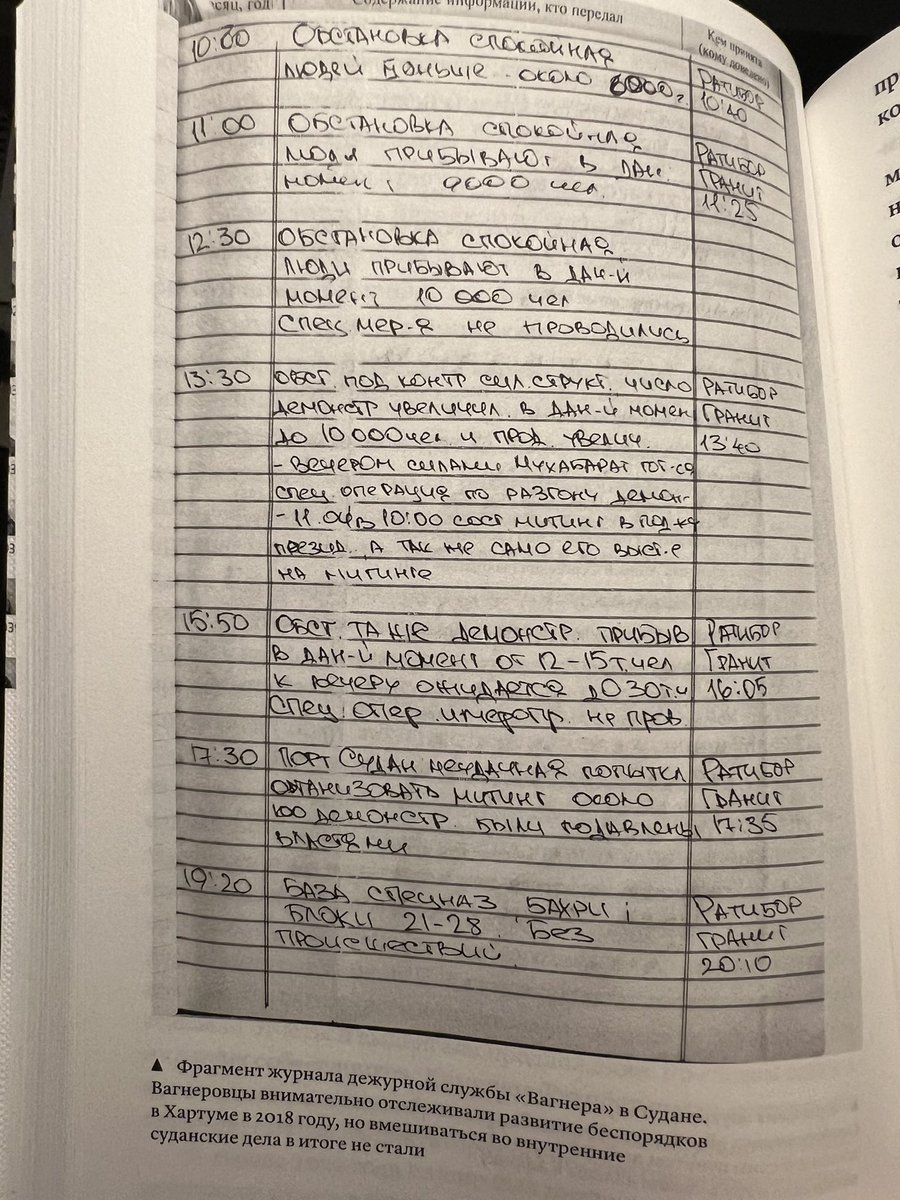 Содержание информации, кто передал
сяц, год
Кем принята
(кому доведено)
10:00 ОБСТАНОВКА СПОКОЙНАЯ РАТИБОР
ЛЮДЕЙ МЕНЬШЕ ОКОЛО 8000 10:40
11:00 ОБСТАНОВКА СПОКОЙНАЯ РАТИБОР
ЛЮДИ ПРИБЫВАЮТ В ДАН. ГРАНИТ
МОМЕНТ 9000 ЧЕЛ. 11:25
12:30 ОБСТАНОВКА СПОКОЙНАЯ
ЛЮДИ ПРИБЫВАЮТ В ДАН-Й
МОМЕНТ 10 000 ЧЕЛ
СПЕЦ МЕР-Я НЕ ПРОВОДИЛИСЬ
13:30 ОБСТ. ПОД КОНТР СИЛ.СТРУКТ. ЧИСЛО РАТИБОР
ДЕМОНСТР УВЕЛИЧИЛ. В ДАН-Й МОМЕН ГРАНИТ
ДО 10 000 ЧЕЛ И ПРОД. УВЕЛИЧ. 13:40
- ВЕЧЕРОМ СИЛАМИ МУХАБАРАТ ГОТ-СЯ
СПЕЦ ОПЕРАЦИЯ ПО РАЗГОНУ ДЕМОН-
- 11.04 В 10:00 СОСТ МИТИНГ В ПОД-КУ
ПРЕЗИД. А ТАК ЖЕ САМО ЕГО ВЫСТ-Е
НА МИТИНГЕ
15:50 ОБСТ. ТА ЖЕ ДЕМОНСТР. ПРИБЫВ РАТИБОР
В ДАН-Й МОМЕНТ ОТ 12-15 Т.ЧЕЛ ГРАНИТ
К ВЕЧЕРУ ОЖИДАЕТСЯ ДО 30 Т.Ч 16:05
СПЕЦ. ОПЕР. И МЕРОПР. НЕ ПРОВ.
17:30 ПОРТ СУДАН НЕУДАЧНАЯ ПОПЫТКА РАТИБОР
ОРГАНИЗОВАТЬ МИТИНГ ОКОЛО ГРАНИТ
100 ДЕМОНСТР. БЫЛИ ПОДАВЛЕНЫ 17:35
ВЛАСТЯМИ
19:20 БАЗА СПЕЦНАЗ БАХРИ; РАТИБОР
БЛОКИ 21-28. БЕЗ ГРАНИТ
ПРОИСШЕСТВИЙ. 20:10
▲ Фрагмент журнала дежурной службы «Вагнера» в Судане.
Вагнеровцы внимательно отслеживали развитие беспорядков
в Хартуме в 2018 году, но вмешиваться во внутренние
суданские дела в итоге не стали